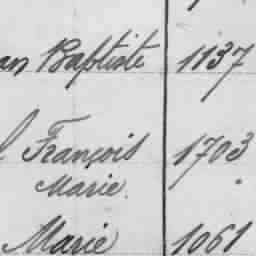 an Baptiste 1137
l François 1703
Marie.
Marie 1061